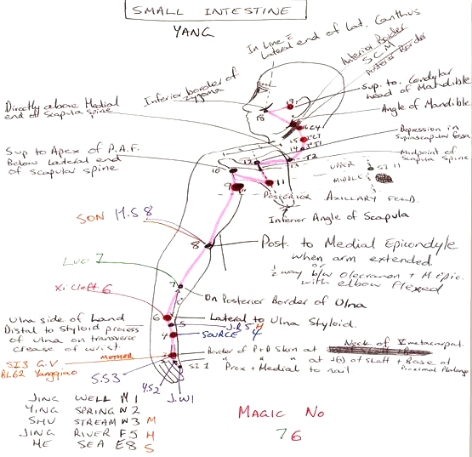 SMALL INTESTINE
YANG
In Line c̄
Lateral end of Lat. Canthus
Anterior Border
S.C.M
Posterior Border
Inferior border of
zygoma
Sup. to. Condylar
head of Mandible
Angle of Mandible
Directly above Medial
end of scapula spine
Depression in
Midpoint of
scapula spine
Sup to Apex of P.A.F.
Below Lateral end
of scapular spine
19
18
17
16
15
14
13
12
11
10
9
POSTERIOR AXILLARY FOLD.
Inferior Angle of Scapula
SON H.S 8
8
Post. to Medial Epicondyle
when arm extended
or
½ way b/w olecranon + M.Epic.
with elbow flexed
Luo 7
7
Xi Cleft 6
On Posterior Border of Ulna
6
Lateral to Ulna Styloid.
5
J.R 5 H
Ulna side of hand
Distal to Styloid process
of Ulna on transverse
crease of wrist
4
SOURCE 4
MOTHER
SI3 G.V
BL62 Yangqiao
S.S3
Y.S2
J.W1
SI 1
Prox + Medial to nail
JING WELL M 1
YING SPRING W 2
SHU STREAM W 3 M
JING RIVER F 5 H
HE SEA E 8 S
MAGIC No
7 6